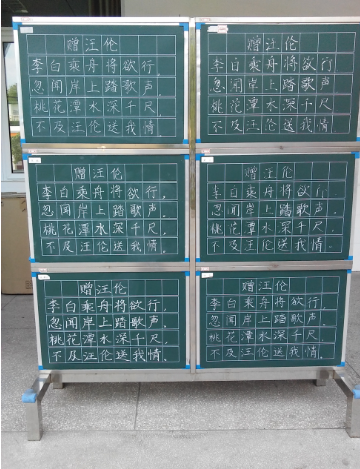 赠汪伦
李白乘舟将欲行，
忽闻岸上踏歌声。
桃花潭水深千尺，
不及汪伦送我情。
赠汪伦
李白乘舟将欲行，
忽闻岸上踏歌声。
桃花潭水深千尺，
不及汪伦送我情。
赠汪伦
李白乘舟将欲行，
忽闻岸上踏歌声。
桃花潭水深千尺，
不及汪伦送我情。
赠汪伦
李白乘舟将欲行，
忽闻岸上踏歌声。
桃花潭水深千尺，
不及汪伦送我情。
赠汪伦
李白乘舟将欲行，
忽闻岸上踏歌声。
桃花潭水深千尺，
不及汪伦送我情。
赠汪伦
李白乘舟将欲行，
忽闻岸上踏歌声。
桃花潭水深千尺，
不及汪伦送我情。